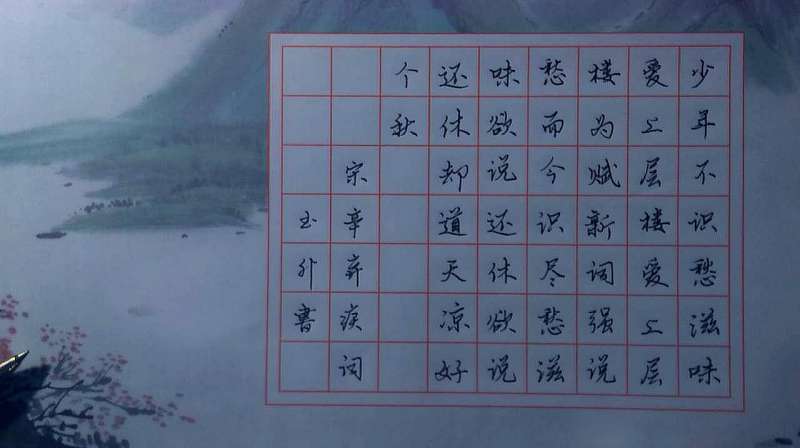 少年不识愁滋味
爱上层楼爱上层
楼为赋新词强说
愁而今识尽愁滋
味欲说还休欲说
还休却道天凉好
个秋
宋辛弃疾词
書